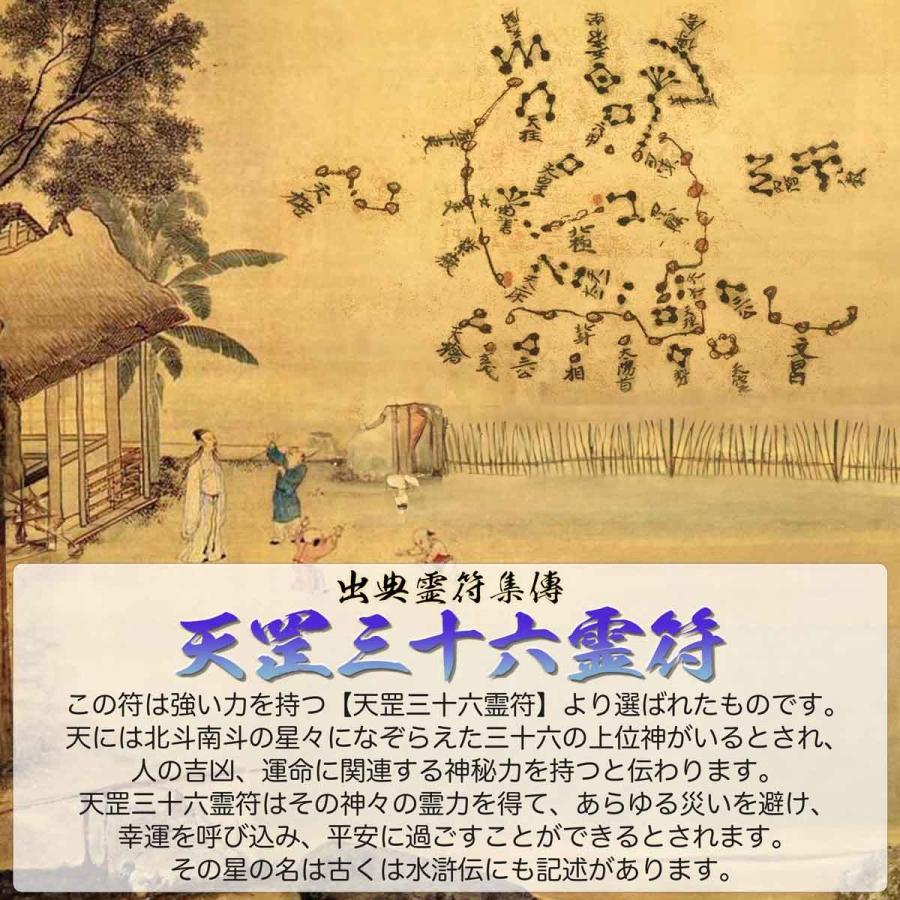 天棓
天柱
北極
相
太陽首
文昌
三公
出典霊符集傳
天罡三十六霊符
この符は強い力を持つ【天罡三十六霊符】より選ばれたものです。
天には北斗南斗の星々になぞらえた三十六の上位神がいるとされ、
人の吉凶、運命に関連する神秘力を持つと伝わります。
天罡三十六霊符はその神々の霊力を得て、あらゆる災いを避け、
幸運を呼び込み、平安に過ごすことができるとされます。
その星の名は古くは水滸伝にも記述があります。